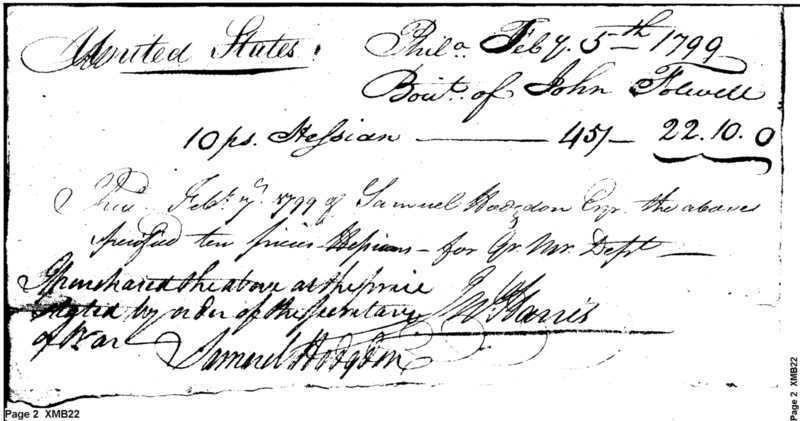 United States. Phila. Feby. 5th 1799
Bout. of John Folwell
10 ps. Hessian 45/ 22.10.0
Feby. 7th 1799 of Samuel Hodgdon Esqr. the above
specified ten pieces Hessians for Qr. Mr. Dept
I purchased the above at the price
stated by order of the Secretary Jno Harris
of War Samuel Hodgdon
Page 2 XMB22
Page 2 XMB22